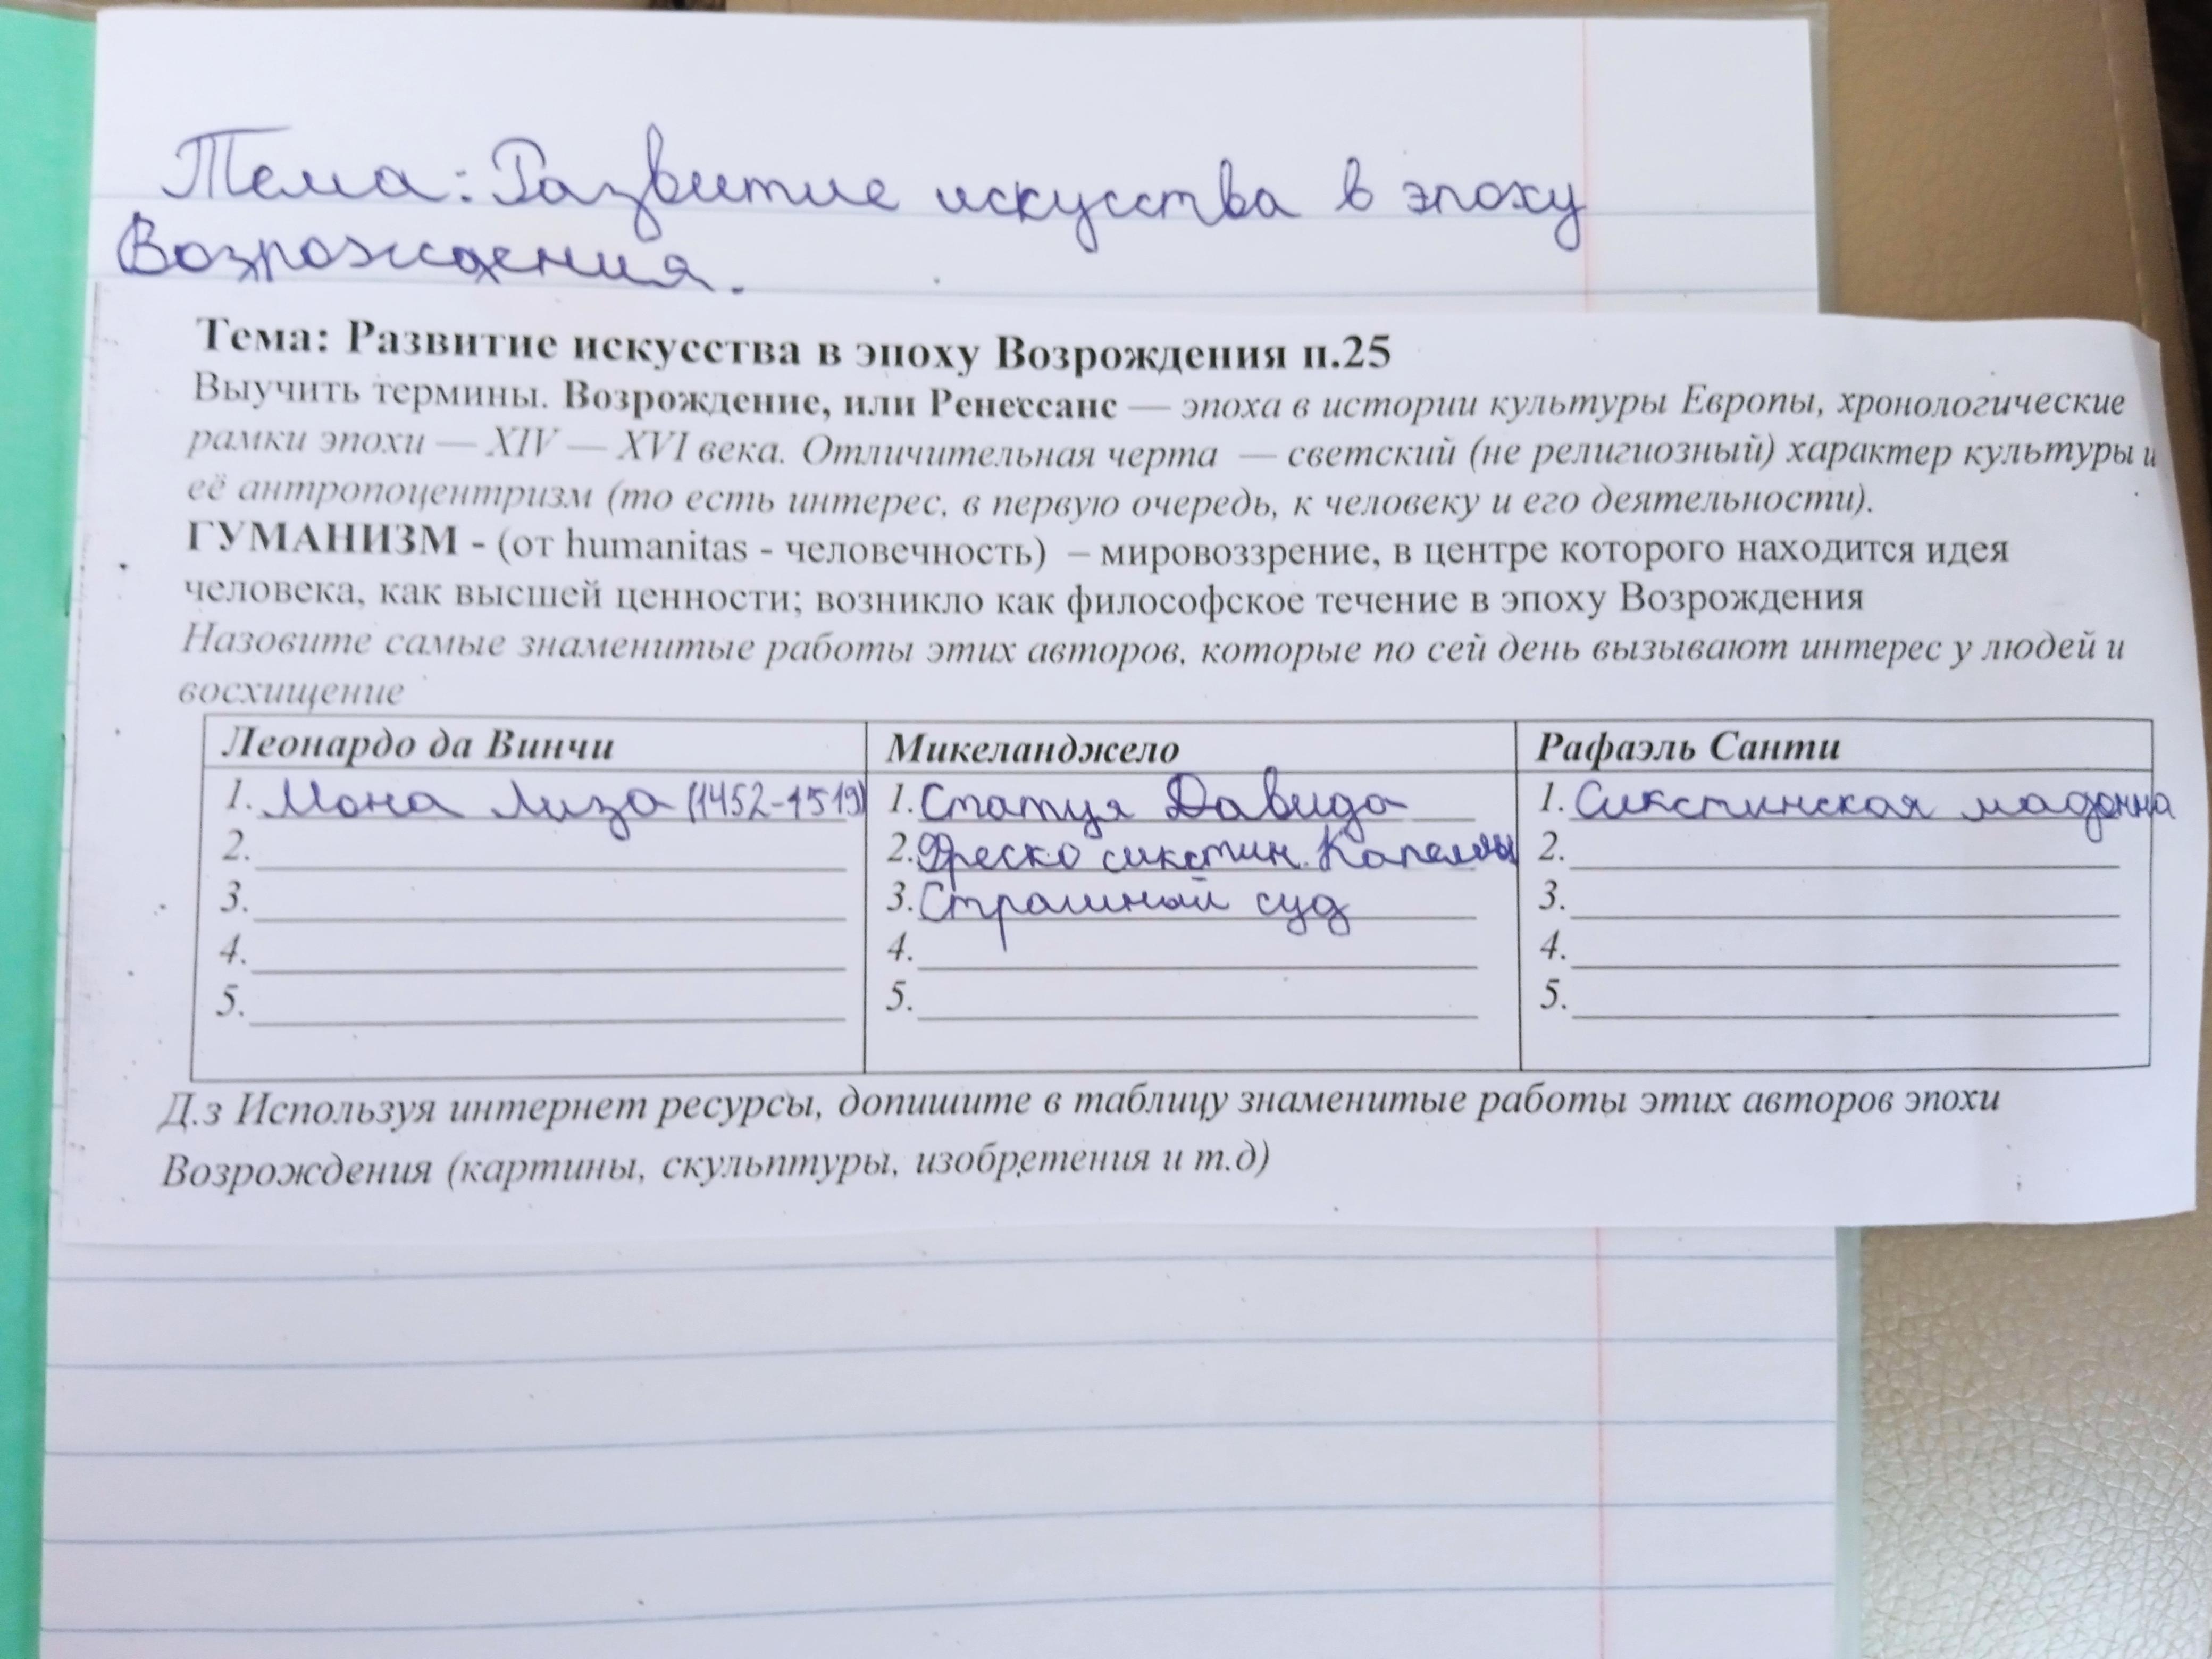 Тема: Развитие искусства в эпоху
Возрождения.
Тема: Развитие искусства в эпоху Возрождения п.25
Выучить термины. Возрождение, или Ренессанс — эпоха в истории культуры Европы, хронологические
рамки эпохи — XIV — XVI века. Отличительная черта — светский (не религиозный) характер культуры и
её антропоцентризм (то есть интерес, в первую очередь, к человеку и его деятельности).
ГУМАНИЗМ - (от humanitas - человечность) – мировоззрение, в центре которого находится идея
человека, как высшей ценности; возникло как философское течение в эпоху Возрождения
Назовите самые знаменитые работы этих авторов, которые по сей день вызывают интерес у людей и
восхищение
Леонардо да Винчи
1. Мона Лиза (1452-1519)
2.
3.
4.
5.
Микеланджело
1. Статуя Давида
2. Фреско сикстин. Капеллы
3. Страшный суд
4.
5.
Рафаэль Санти
1. Сикстинская мадонна
2.
3.
4.
5.
Д.з Используя интернет ресурсы, допишите в таблицу знаменитые работы этих авторов эпохи
Возрождения (картины, скульптуры, изобретения и т.д)